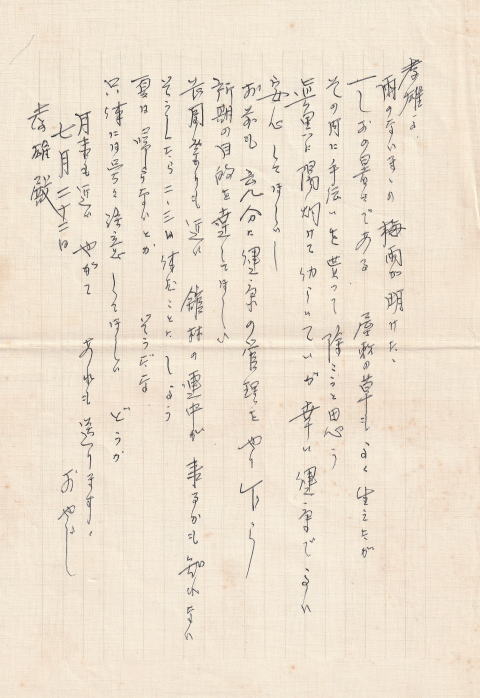 孝雄よ、
雨のないまゝの 梅雨が明けた、
一しおの暑さである 屋敷の草もよく生えたが
その内に手伝いを貰って 除こうと思う
無理に陽炯けて 幼らいていが 幸い健康でるい
安心してほしい
お前も充分に健康の管理をやり乍ら
所期の目的を達してほしい
長岡祭りも近い 館林の連中が来るかも知れない
そうしたら二、三日待ることにしよう
夏は帰らないとか そうだな
只体には呉々注意してほしい どうか
月末も近い やがて あれも送ります、
おやじ
七月二十三日
孝雄殿